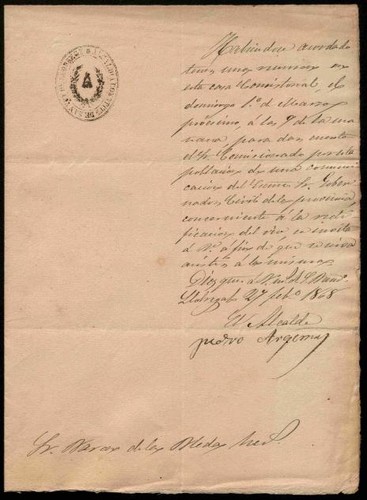 Habiendose acordado
tener una reunion en
esta casa Consistorial, el
domingo 1º de Marzo
próximo á las 9 de la ma
ñana para dar cuenta
el Sr. Comisionado por esta
poblacion de una comuni
cacion del Sr. Gober
nador Civil de la provincia,
concerniente á la recti
ficacion del rio se invita
á V. á fin de que se sirva
asistir á la misma.
Dios gue. á V. m. a.
Llobregat 27 febº 1868
El Alcalde
pedro Argemi
Sr. Baron de las